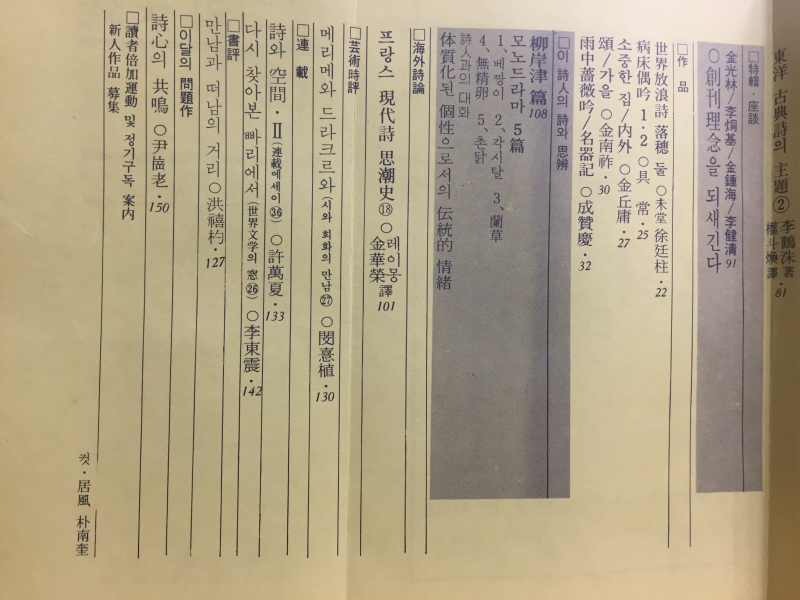 東洋 古典詩의 主題② 李鶴洙著
權斗煥譯・81
□特輯・座談
金光林/李炯基/金鍾海/李健清 91
○創刊理念을 되새긴다
□作品
世界放浪詩 落穂 둘 ○未堂 徐廷柱・22
病床偶吟 1・2 ○具 常・25
소중한 집/内外 ○金丘庸・27
頌/가을 ○金南祚・30
雨中薔薇吟/名器記 ○成賛慶・32
□이 詩人의 詩와 思辨
柳岸津 篇 108
모노드라마 5篇
1、베짱이 2、각시탈 3、蘭草
4、無精卵 5、촌닭
詩人과의 대화
体質化된 個性으로서의 伝統的 情緒
□海外詩論
프랑스 現代詩 思潮史⑱ ○레이몽
金華榮譯 101
□芸術時評
메리메와 드라크르와(시와 회화의 만남㉗) ○閔憙植・130
□連載
詩와 空間・Ⅱ(連載에세이㊱) ○許萬夏・133
다시 찾아본 빠리에서(世界文学의 窓㉖) ○李東震・142
□書評
만남과 떠남의 거리 ○洪禧杓・127
□이달의 問題作
詩心의 共鳴 ○尹崙老・150
□讀者倍加運動 및 정기구독 案内
新人作品 募集
컷・居風 朴南奎